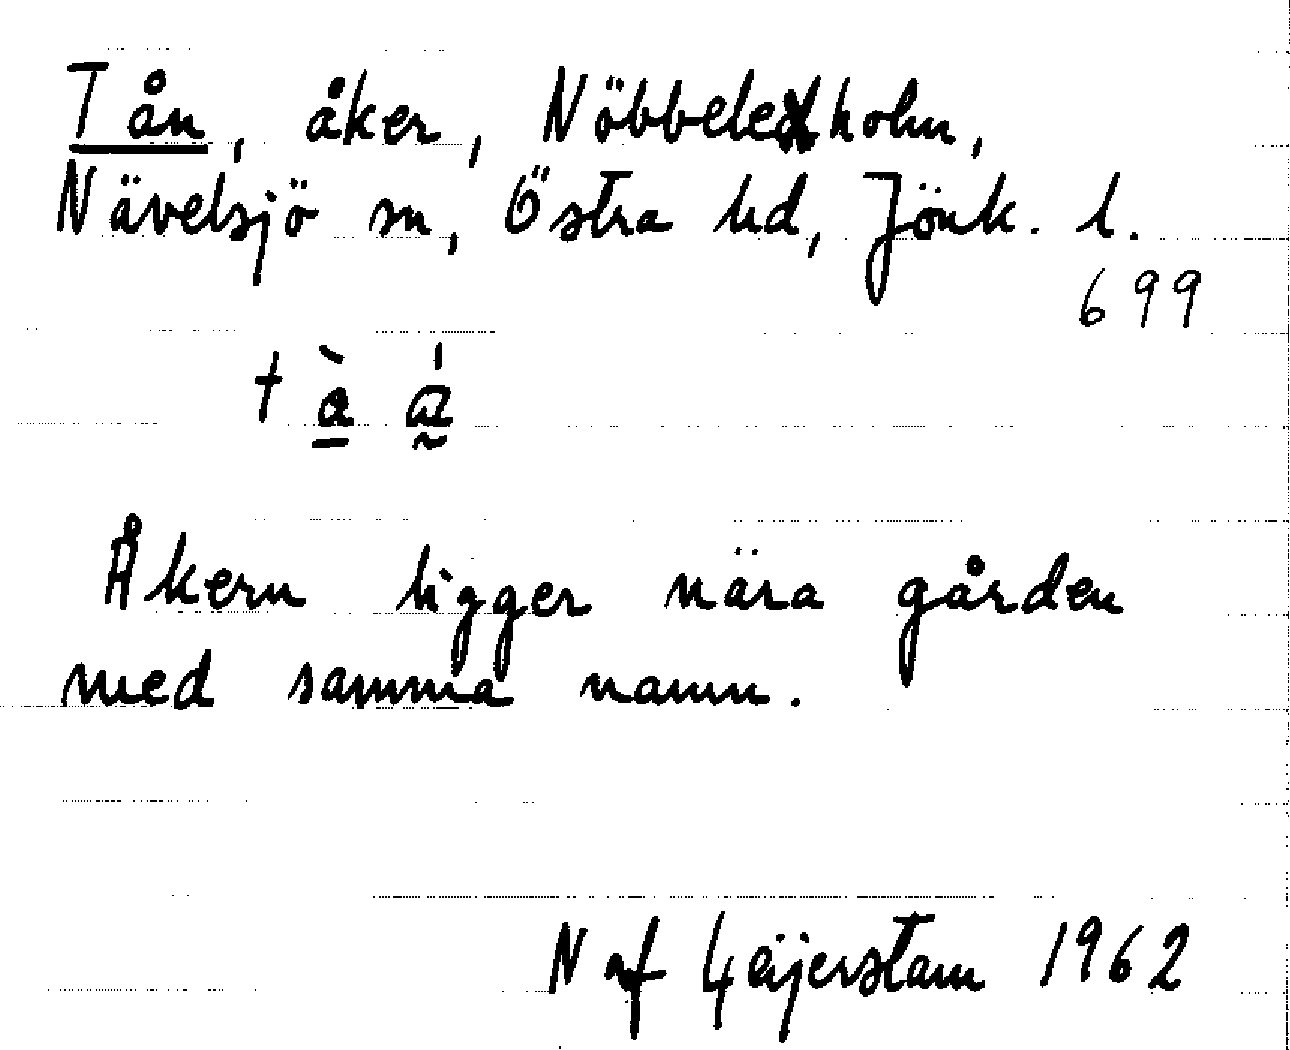 Tån, åker, Nöbbeleholm,
Nävelsjö sn, Östra hd, Jönk. l.
699
Åkern ligger nära gården
med samma namn.
N af Geijerstam 1962